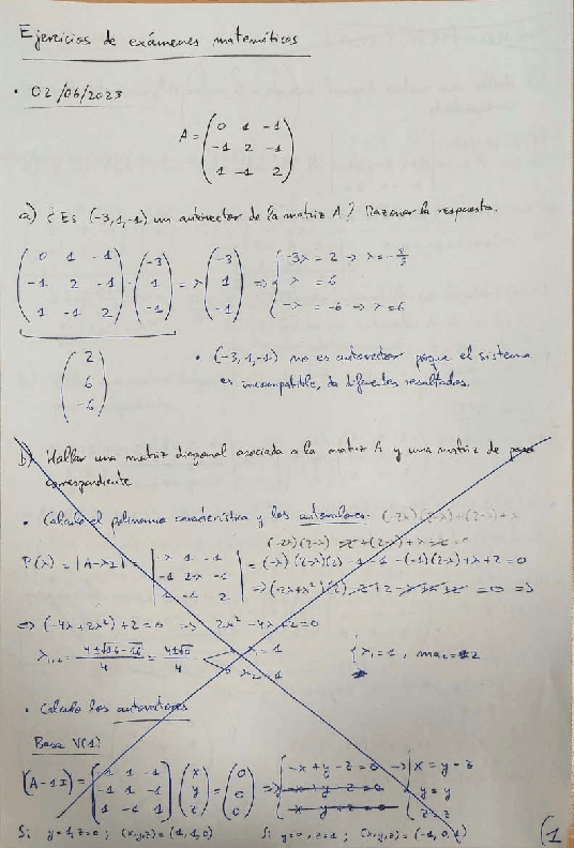 Ejercicios de exámenes matemáticas
• 02/06/2023
A = ( 0 1 -1
-1 2 -1
1 -1 2 )
a) ¿Es (-3,1,-1) un autovector de la matriz A? Razonar la respuesta.
( 0 1 -1 ; -1 2 -1 ; 1 -1 2 ) · ( -3 ; 1 ; -1 ) = λ ( -3 ; 1 ; -1 ) ⇒ { -3λ = 2 → λ = -
λ = 6
-λ = -6 → λ = 6
( 2 ; 6 ; -6 )
• (-3,1,-1) no es autovector porque el sistema
es incompatible, da diferentes resultados.
b) Hallar una matriz diagonal asociada a la matriz A y una matriz de paso
correspondiente
• Calculo el polinomio característico y los autovalores.
P(λ) = |A-λI| =
⇒ (-4λ + 2λ²) + 2 = 0 ⇒ 2λ² - 4λ + 2 = 0
λ₁,₂ = (4±√16-16)/4 = (4±√0)/4 λ₁ = 1
λ₂ = 1
{ λ₁ = 1, ma = 2
• Calculo los autovectores
Base V(1)
(A-1I) = ( -1 1 -1 ; -1 1 -1 ; 1 -1 1 ) ( x ; y ; z ) = ( 0 ; 0 ; 0 ) ⇒ { -x + y - z = 0 → { x = y - z
y = y
z = z
Si y=1, z=0; (x,y,z) = (1,1,0) Si y=0, z=1; (x,y,z) = (-1,0,1)
(1